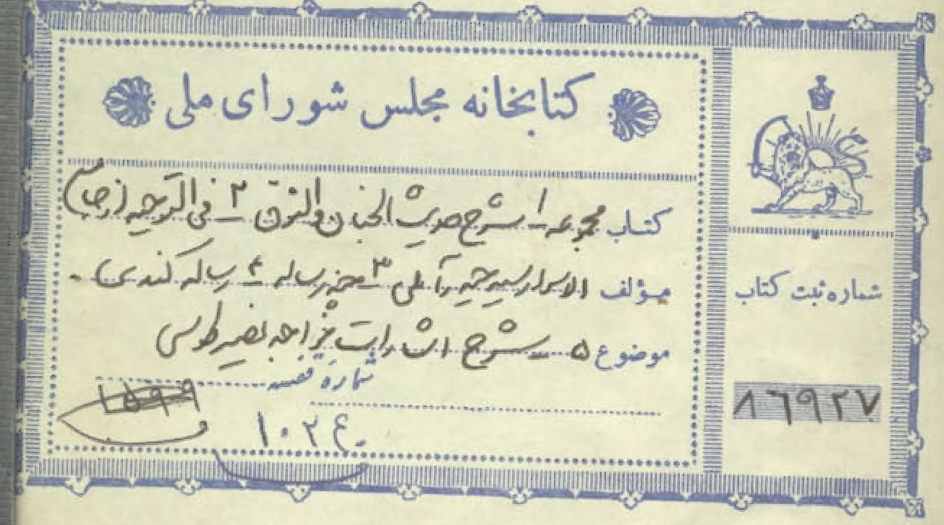 کتابخانه مجلس شورای ملی
کتاب مجموعه ۱ـ شرح حدیث الجنان و ۲ـ فی التوحید (جامع
مؤلف الاسرار سید حیدر آملی ۳ـ چند رساله ۴ـ رساله کندی ـ
موضوع ۵ ـ شرح اشارات خواجه نصیر طوسی
شماره قفسه
۱۵۹۹
۱۰۲۴۰
شماره ثبت کتاب
۸۶۹۲۷